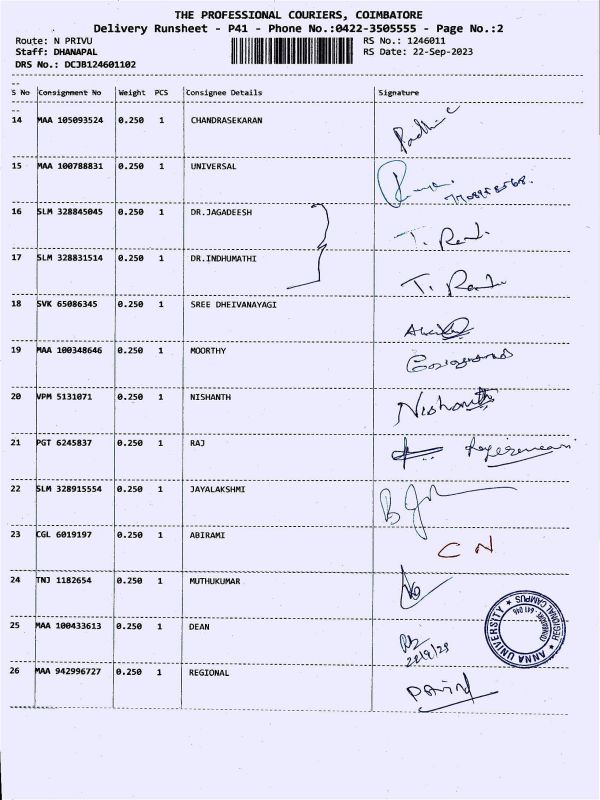 THE PROFESSIONAL COURIERS, COIMBATORE
Delivery Runsheet - P41 - Phone No.:0422-3505555 - Page No.:2
Route: N PRIVU RS No.: 1246011
Staff: DHANAPAL RS Date: 22-Sep-2023
DRS No.: DCJB124601102
S No Consignment No Weight PCS Consignee Details Signature
14 MAA 105093524 0.250 1 CHANDRASEKARAN
15 MAA 100788831 0.250 1 UNIVERSAL
16 SLM 328845045 0.250 1 DR.JAGADEESH
17 SLM 328831514 0.250 1 DR.INDHUMATHI
18 SVK 65086345 0.250 1 SREE DHEIVANAYAGI
19 MAA 100348646 0.250 1 MOORTHY
20 VPM 5131071 0.250 1 NISHANTH Nishanth
21 PGT 6245837 0.250 1 RAJ
22 SLM 328915554 0.250 1 JAYALAKSHMI
23 CGL 6019197 0.250 1 ABIRAMI C N
24 TNJ 1182654 0.250 1 MUTHUKUMAR
25 MAA 100433613 0.250 1 DEAN
ANNA UNIVERSITY REGIONAL CAMPUS
26 MAA 942996727 0.250 1 REGIONAL